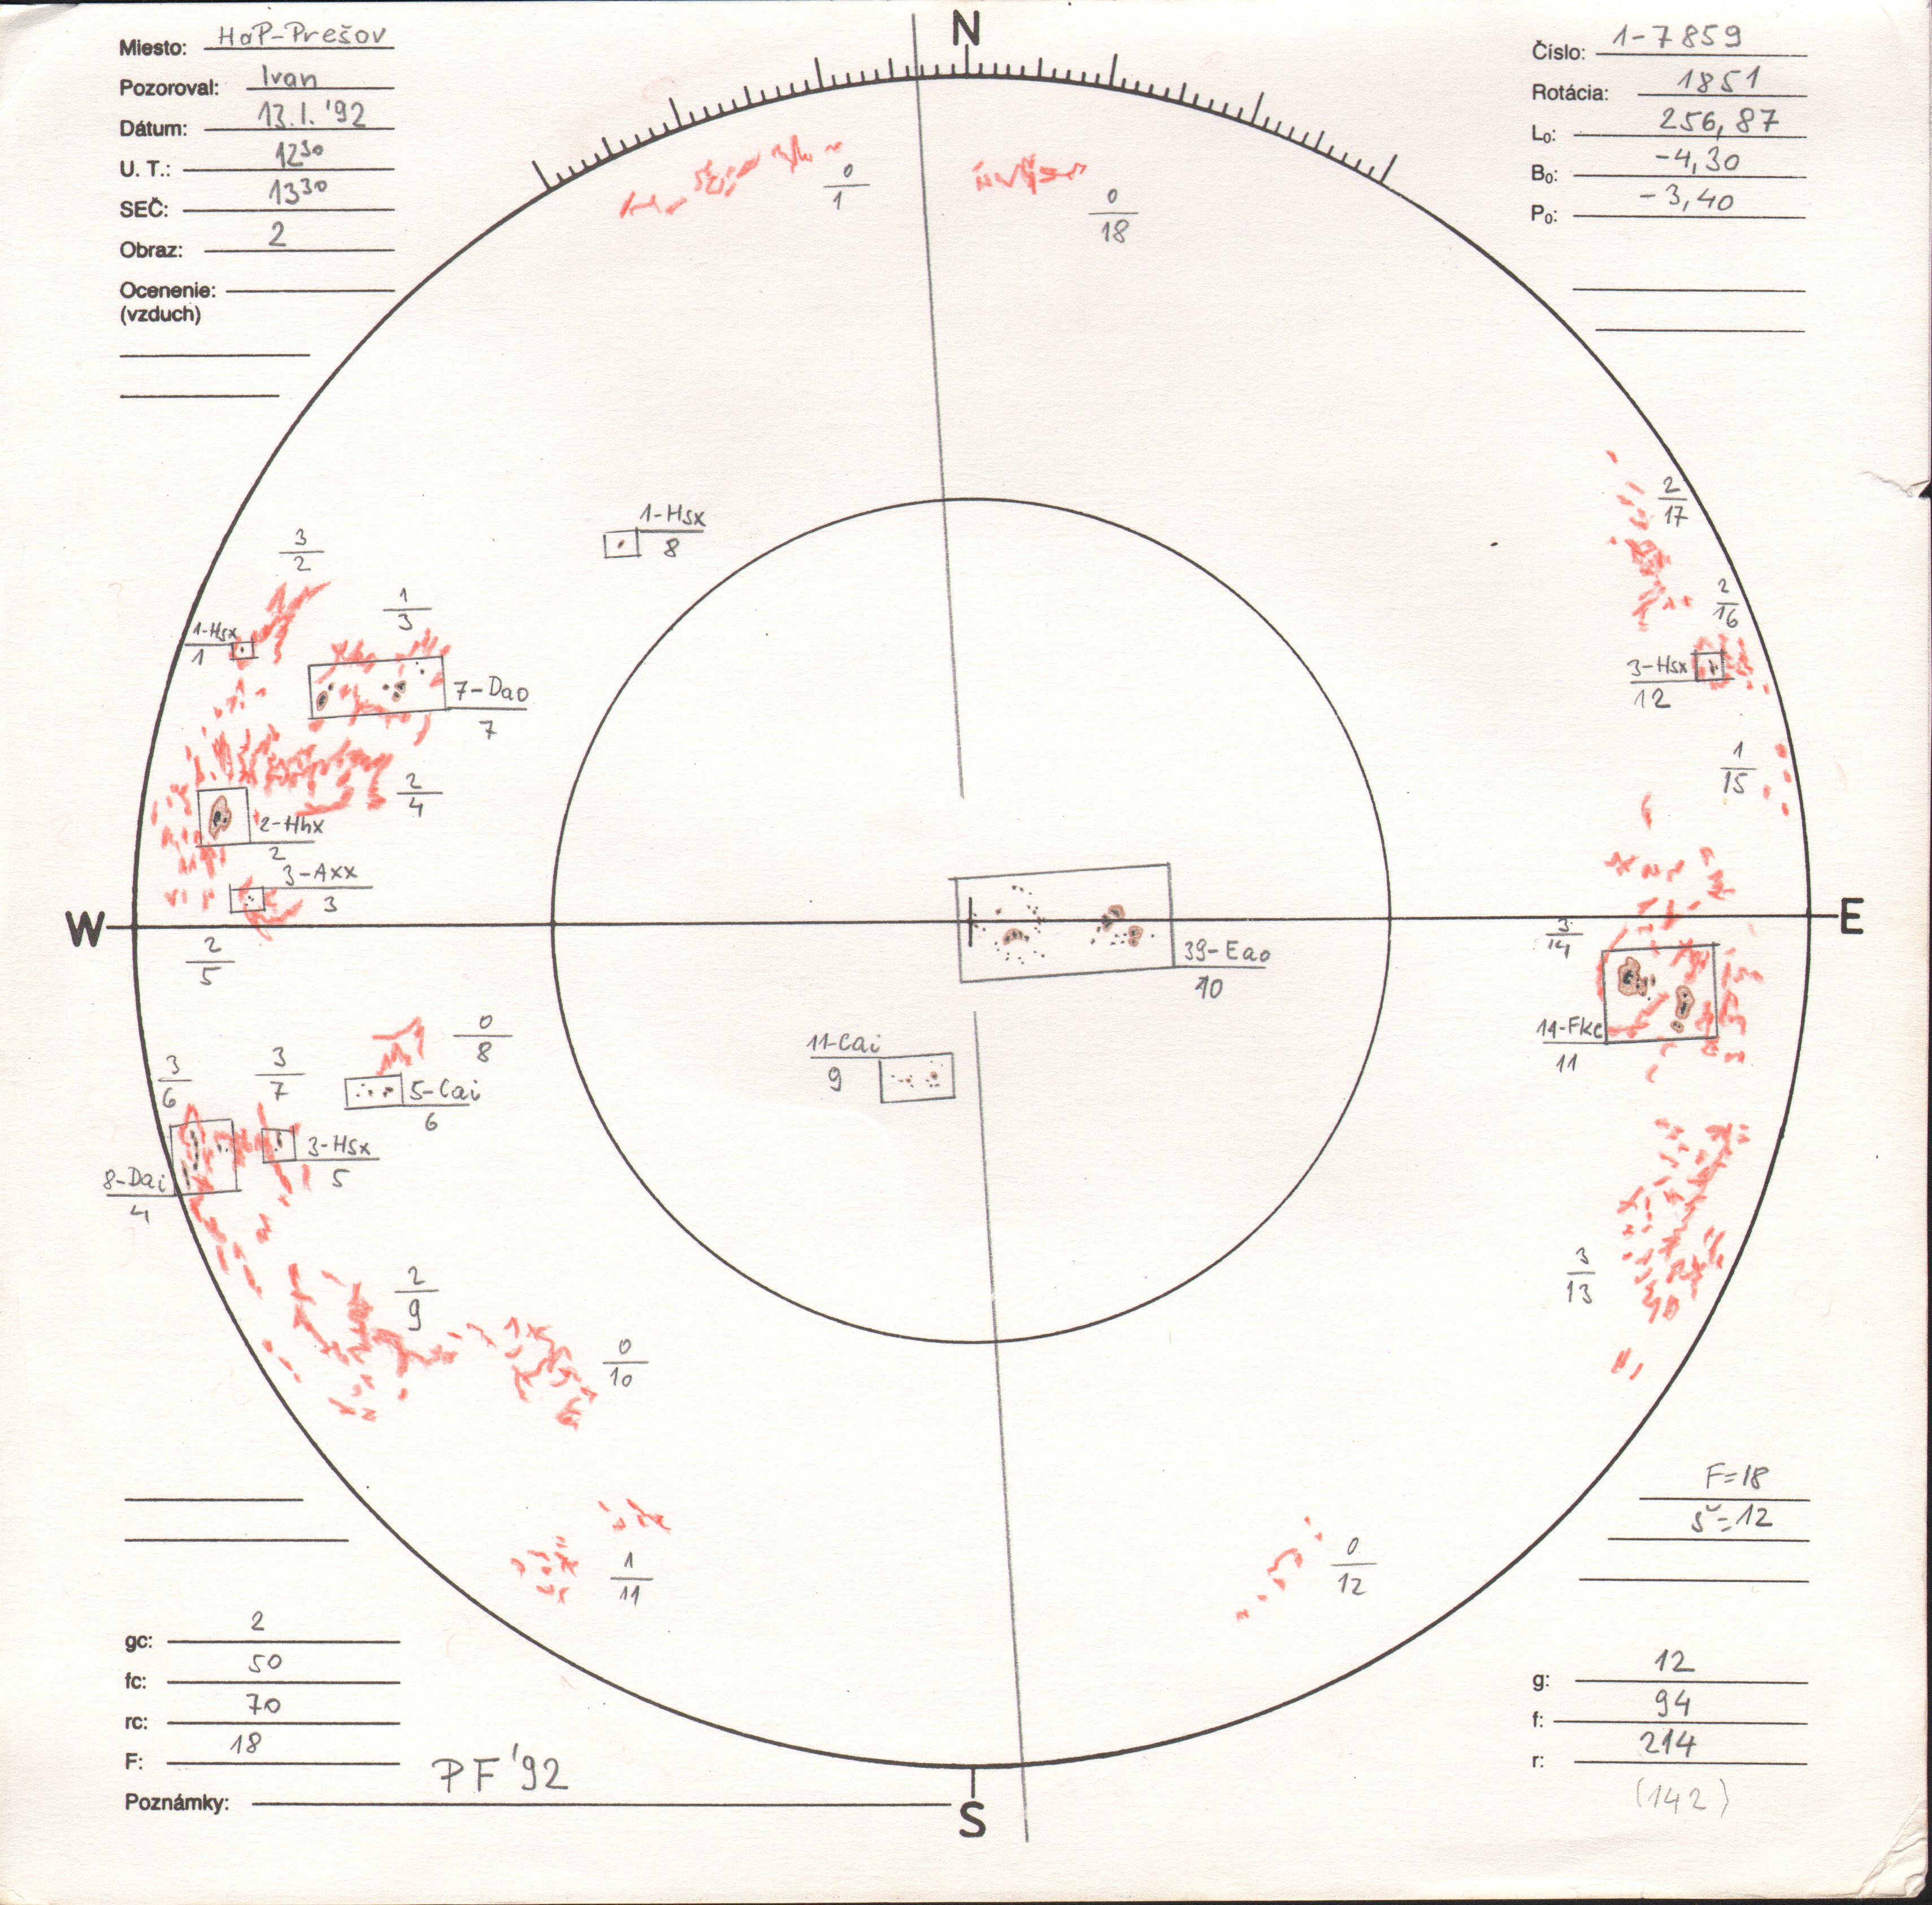 N
Miesto: HaP-Prešov
Pozoroval: Ivan
Dátum: 13.1. '92
U. T.: 12³⁰
SEČ: 13³⁰
Obraz: 2
Ocenenie:
(vzduch)
Číslo: 1-7859
Rotácia: 1851
L₀: 256,87
B₀: -4,30
P₀: -3,40
0
1
0
18
1-Hsx
8
3
2
1
3
1-Hsx
1
7-Dao
7
2
4
2-Hhx
2
3-Axx
3
W
2
5
2
17
2
16
3-Hsx
12
1
15
E
3
14
14-Fkc
11
39-Eao
10
11-Cai
9
0
8
3
6
3
7
5-Cai
6
3-Hsx
5
8-Dai
4
2
9
0
10
3
13
1
11
0
12
F=18
š=12
gc: 2
fc: 50
rc: 70
F: 18
Poznámky: PF '92
S
g: 12
f: 94
r: 214
(142)